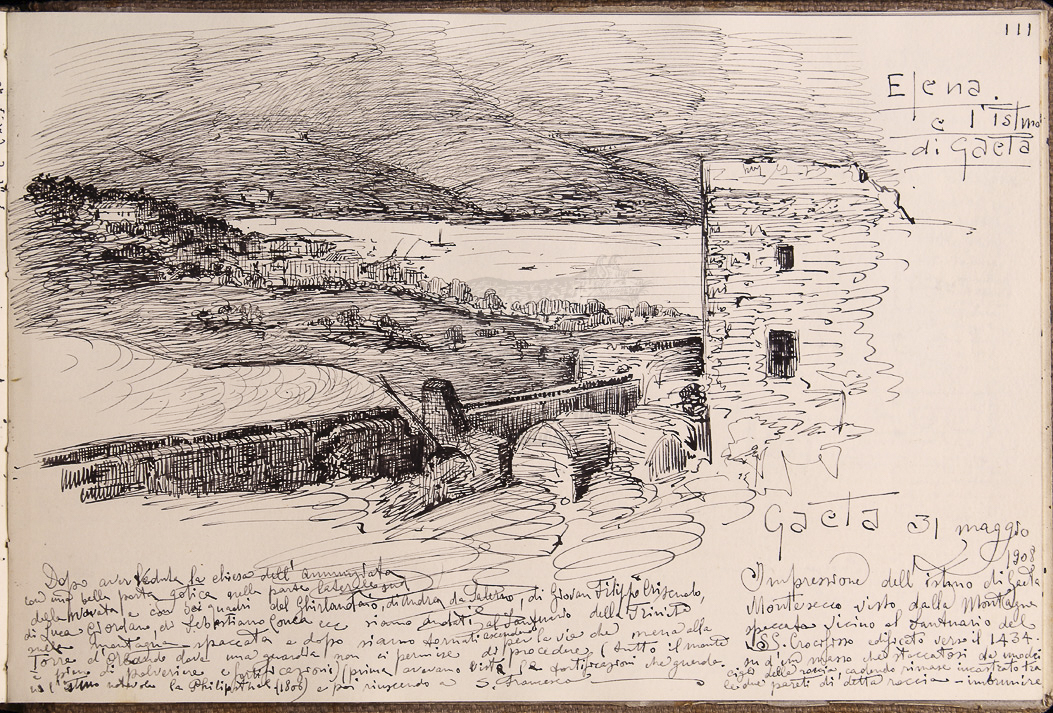 111
Elena
e l'istmo
di Gaeta
Gaeta 31 maggio
1908
Dopo aver veduta la chiesa dell'Annunziata
con una bella porta gotica nella parte laterale sud
della navata e con dei quadri del Ghirlandaio, di Andrea da Salerno, di Giovan Filippo Criscuolo,
di Luca Giordano, di Sebastiano Conca ecc siamo andati al Santuario della Trinità
nella montagna spaccata e dopo siamo tornati la via che mena alla
Torre d'Orlando dove una guardia non ci permise di procedere (tutto il monte
è pieno di polveriere e fortificazioni) (prima avevamo vista la fortificazioni che guarda
la Philipsthal (1806) e poi riuscendo a S. Francesco
Impressione dell'istmo di Gaeta
Montesecco visto dalla Montagna
spaccata vicino al Santuario del
SS. Crocifisso edificato verso il 1434
su d'un masso che staccatosi da
della roccia cadendo rimase incastrato tra
le due pareti di detta roccia -